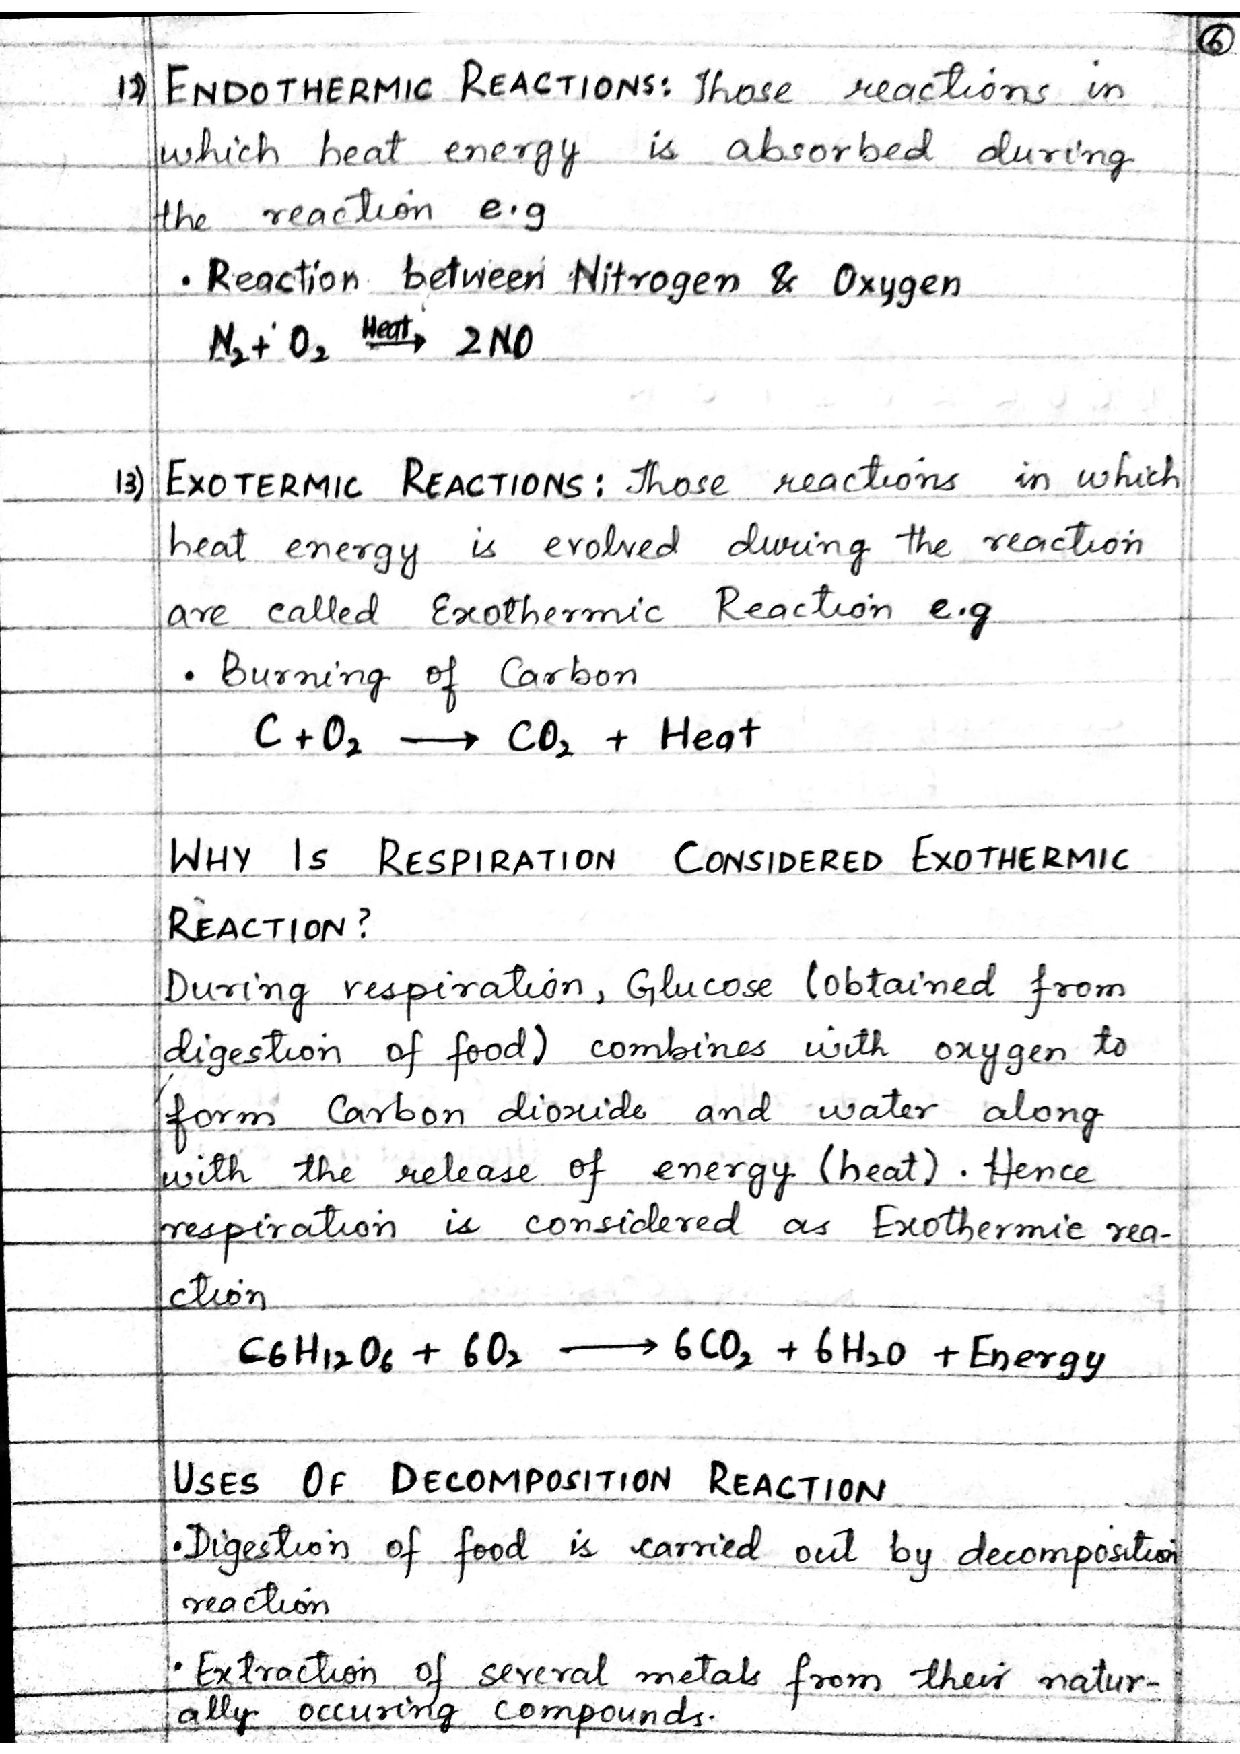 6
12) ENDOTHERMIC REACTIONS: Those reactions in
which heat energy is absorbed during
the reaction e.g
• Reaction between Nitrogen & Oxygen
N₂ + O₂ Heat→ 2NO
13) EXOTERMIC REACTIONS: Those reactions in which
heat energy is evolved during the reaction
are called Exothermic Reaction e.g
• Burning of Carbon
C + O₂ → CO₂ + Heat
WHY IS RESPIRATION CONSIDERED EXOTHERMIC
REACTION?
During respiration, Glucose (obtained from
digestion of food) combines with oxygen to
form Carbon dioxide and water along
with the release of energy (heat). Hence
respiration is considered as Exothermic rea-
ction
C6H₁₂O₆ + 6O₂ → 6CO₂ + 6H₂O + Energy
USES OF DECOMPOSITION REACTION
• Digestion of food is carried out by decomposition
reaction
• Extraction of several metals from their natur-
ally occuring compounds.